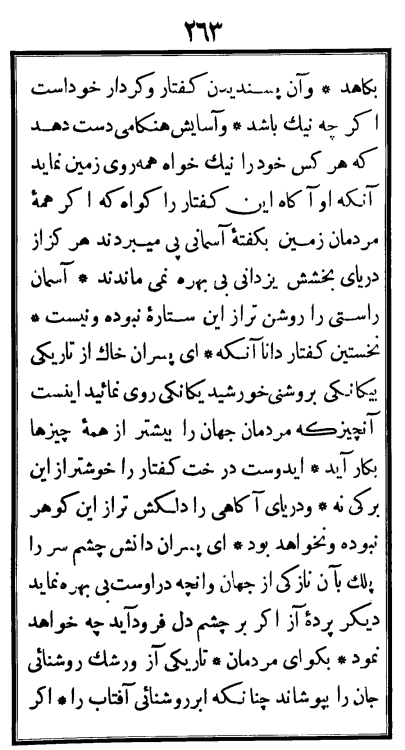 ۲۶۳
بکاهد * وآن پسندیدن کفتار وکردار خوداست
اکر چه نیك باشد * وآسایش هنکامی دست دهد
که هر کس خود را نیك خواه همه روی زمین نماید
آنکه او آکاه این کفتار را کواه که اکر همهٔ
مردمان زمین بکفتهٔ آسمانی پی میبردند هر کز از
دریای بخشش یزدانی بی بهره نمی ماندند * آسمان
راستی را روشن تر از این ستارهٔ نبوده ونیست *
نخستین کفتار دانا آنکه * ای پسران خاك از تاریکی
بیکانکی بروشنی خورشید یکانکی روی نمائید اینست
آنچیزکه مردمان جهان را بیشتر از همهٔ چیزها
بکار آید * ایدوست درخت کفتار را خوشتر از این
برکی نه * ودریای آکاهی را دلکش تر از این کوهر
نبوده ونخواهد بود * ای پسران دانش چشم سر را
پلك بآن نازکی از جهان وانچه در اوست بی بهره نماید
دیکر پردهٔ آز اکر بر چشم دل فرود آید چه خواهد
نمود * بکو ای مردمان * تاریکی آز ورشك روشنائی
جان را بپوشاند چنانکه ابر روشنائی آفتاب را * اکر